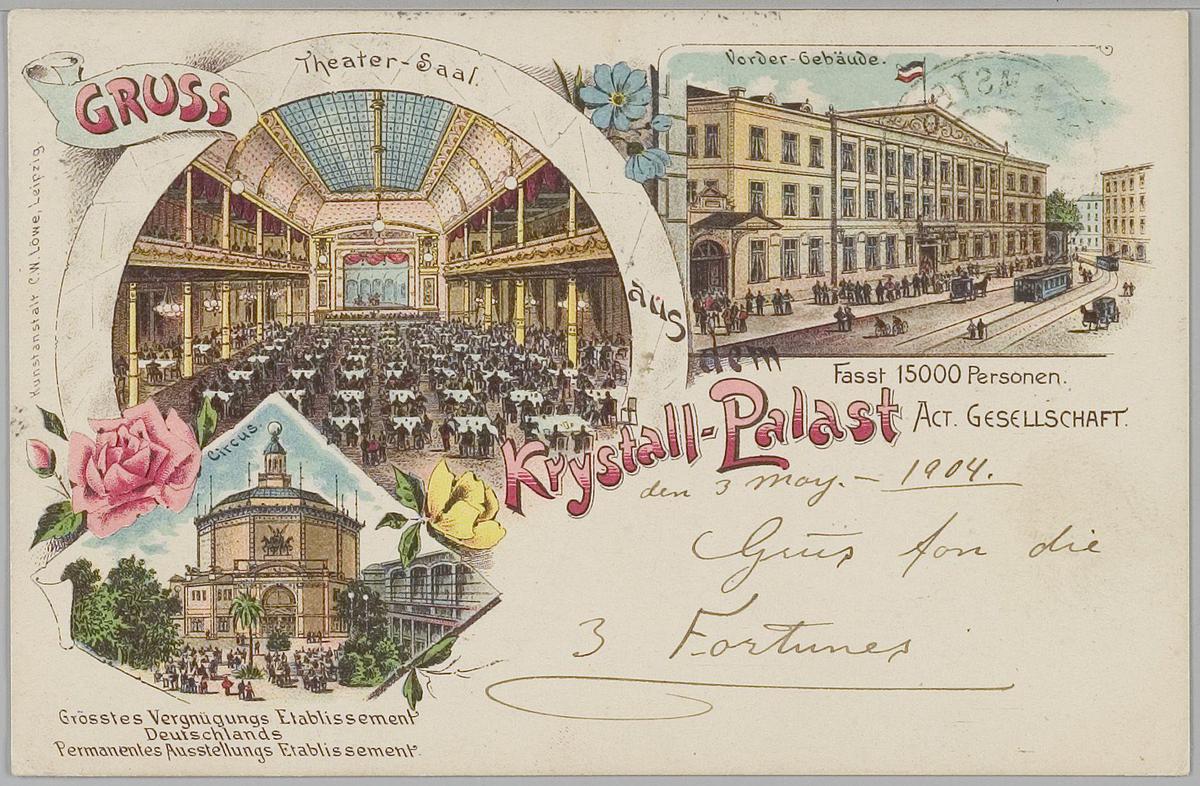 GRUSS
Theater-Saal.
Vorder-Gebäude.
aus
dem
Krystall-Palast
Fasst 15000 Personen.
Act. Gesellschaft.
den 3 May. – 1904.
Grüs fon die
3 Fortunes
Circus.
Grösstes Vergnügungs Etablissement
Deutschlands
Permanentes Ausstellungs Etablissement.
Kunstanstalt C.W. Löwe, Leipzig.